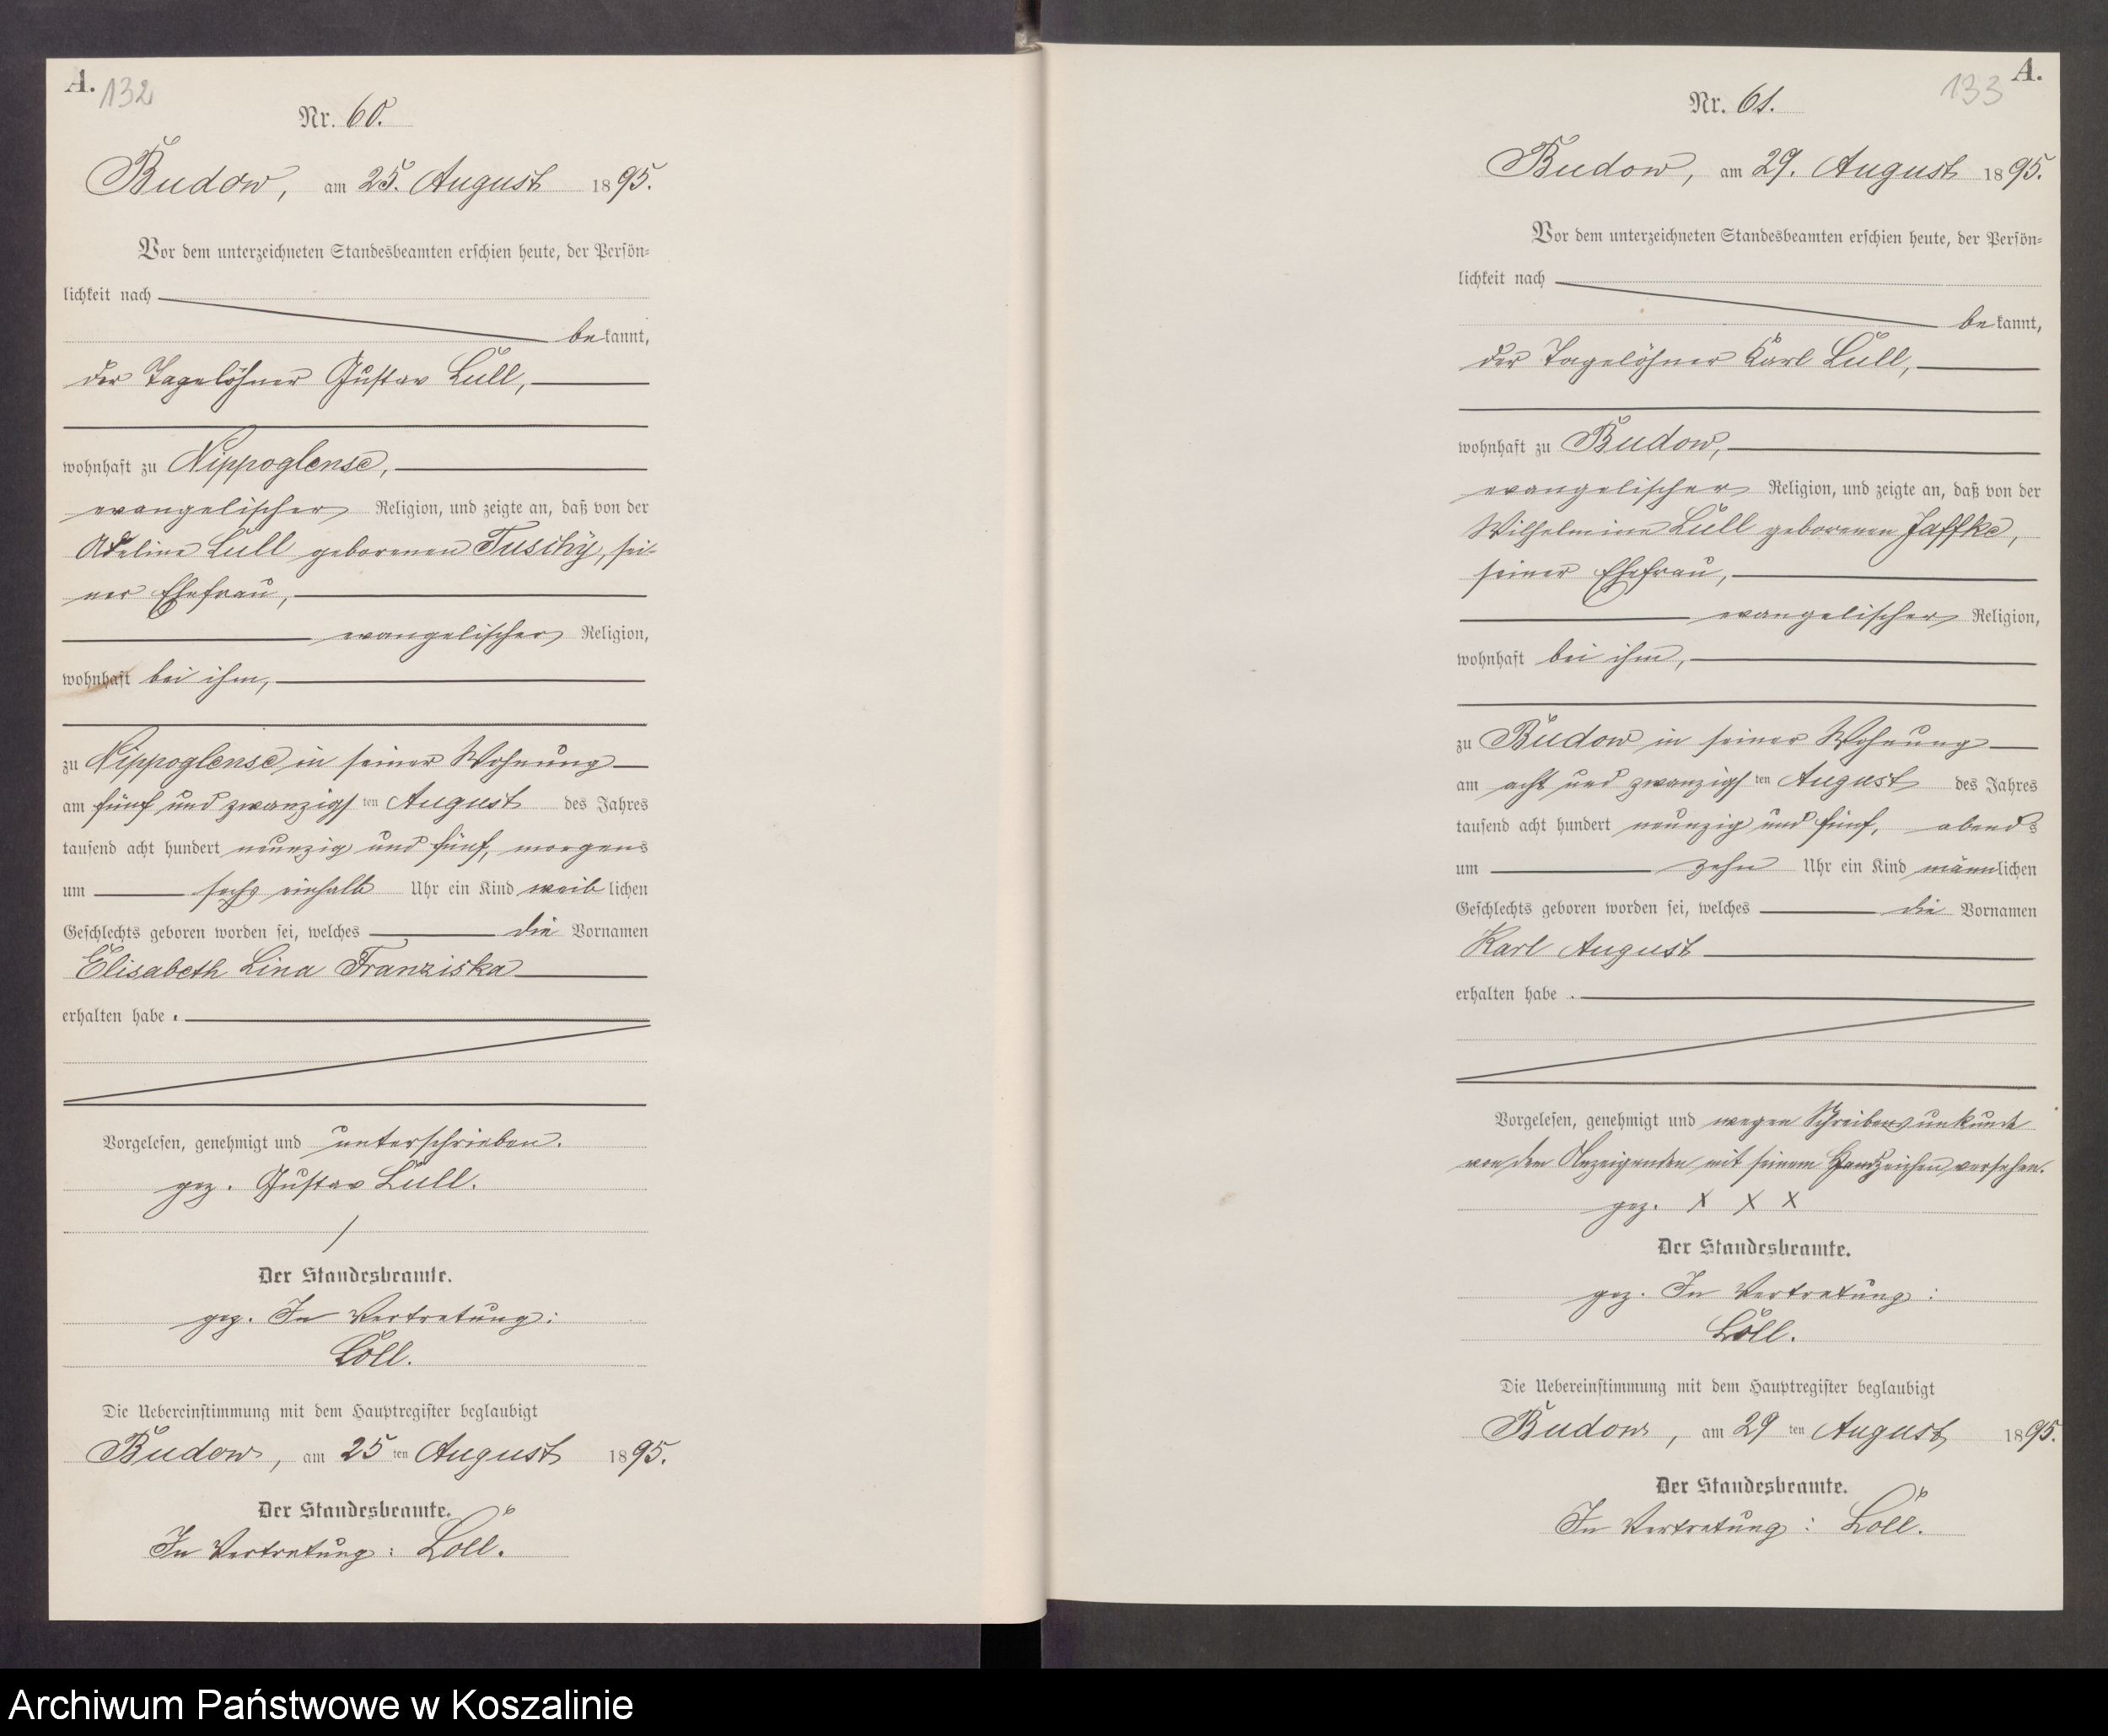 A. 132
Nr. 60.
Budow, am 25. August 1895.
Vor dem unterzeichneten Standesbeamten erschien heute, der Persön-
lichkeit nach
bekannt,
der Tagelöhner Gustav Lüll,
wohnhaft zu Nippoglense,
evangelischer Religion, und zeigte an, daß von der
Adeline Lüll geborenen Tuschy, sei-
ner Ehefrau,
evangelischer Religion,
wohnhaft bei ihm,
zu Nippoglense in seiner Wohnung
am fünf und zwanzigsten August des Jahres
tausend acht hundert neunzig und fünf, morgens
um sechs einhalb Uhr ein Kind weiblichen
Geschlechts geboren worden sei, welches die Vornamen
Elisabeth Lina Franziska
erhalten habe.
Vorgelesen, genehmigt und unterschrieben.
gez. Gustav Lüll.
Der Standesbeamte.
gez. In Vertretung:
Löll.
Die Uebereinstimmung mit dem Hauptregister beglaubigt
Budow, am 25ten August 1895.
Der Standesbeamte.
In Vertretung: Löll.
133 A.
Nr. 61.
Budow, am 29. August 1895.
Vor dem unterzeichneten Standesbeamten erschien heute, der Persön-
lichkeit nach
bekannt,
der Tagelöhner Karl Lüll,
wohnhaft zu Budow,
evangelischer Religion, und zeigte an, daß von der
Wilhelmine Lüll geborenen Jaffke,
seiner Ehefrau,
evangelischer Religion,
wohnhaft bei ihm,
zu Budow in seiner Wohnung
am acht und zwanzigsten August des Jahres
tausend acht hundert neunzig und fünf, abends
um zehn Uhr ein Kind männlichen
Geschlechts geboren worden sei, welches die Vornamen
Karl August
erhalten habe.
Vorgelesen, genehmigt und wegen Schreibensunkunde
von dem Anzeigenden mit seinem Handzeichen versehen.
gez. X X X
Der Standesbeamte.
gez. In Vertretung:
Löll.
Die Uebereinstimmung mit dem Hauptregister beglaubigt
Budow, am 29ten August 1895.
Der Standesbeamte.
In Vertretung: Löll.
Archiwum Państwowe w Koszalinie